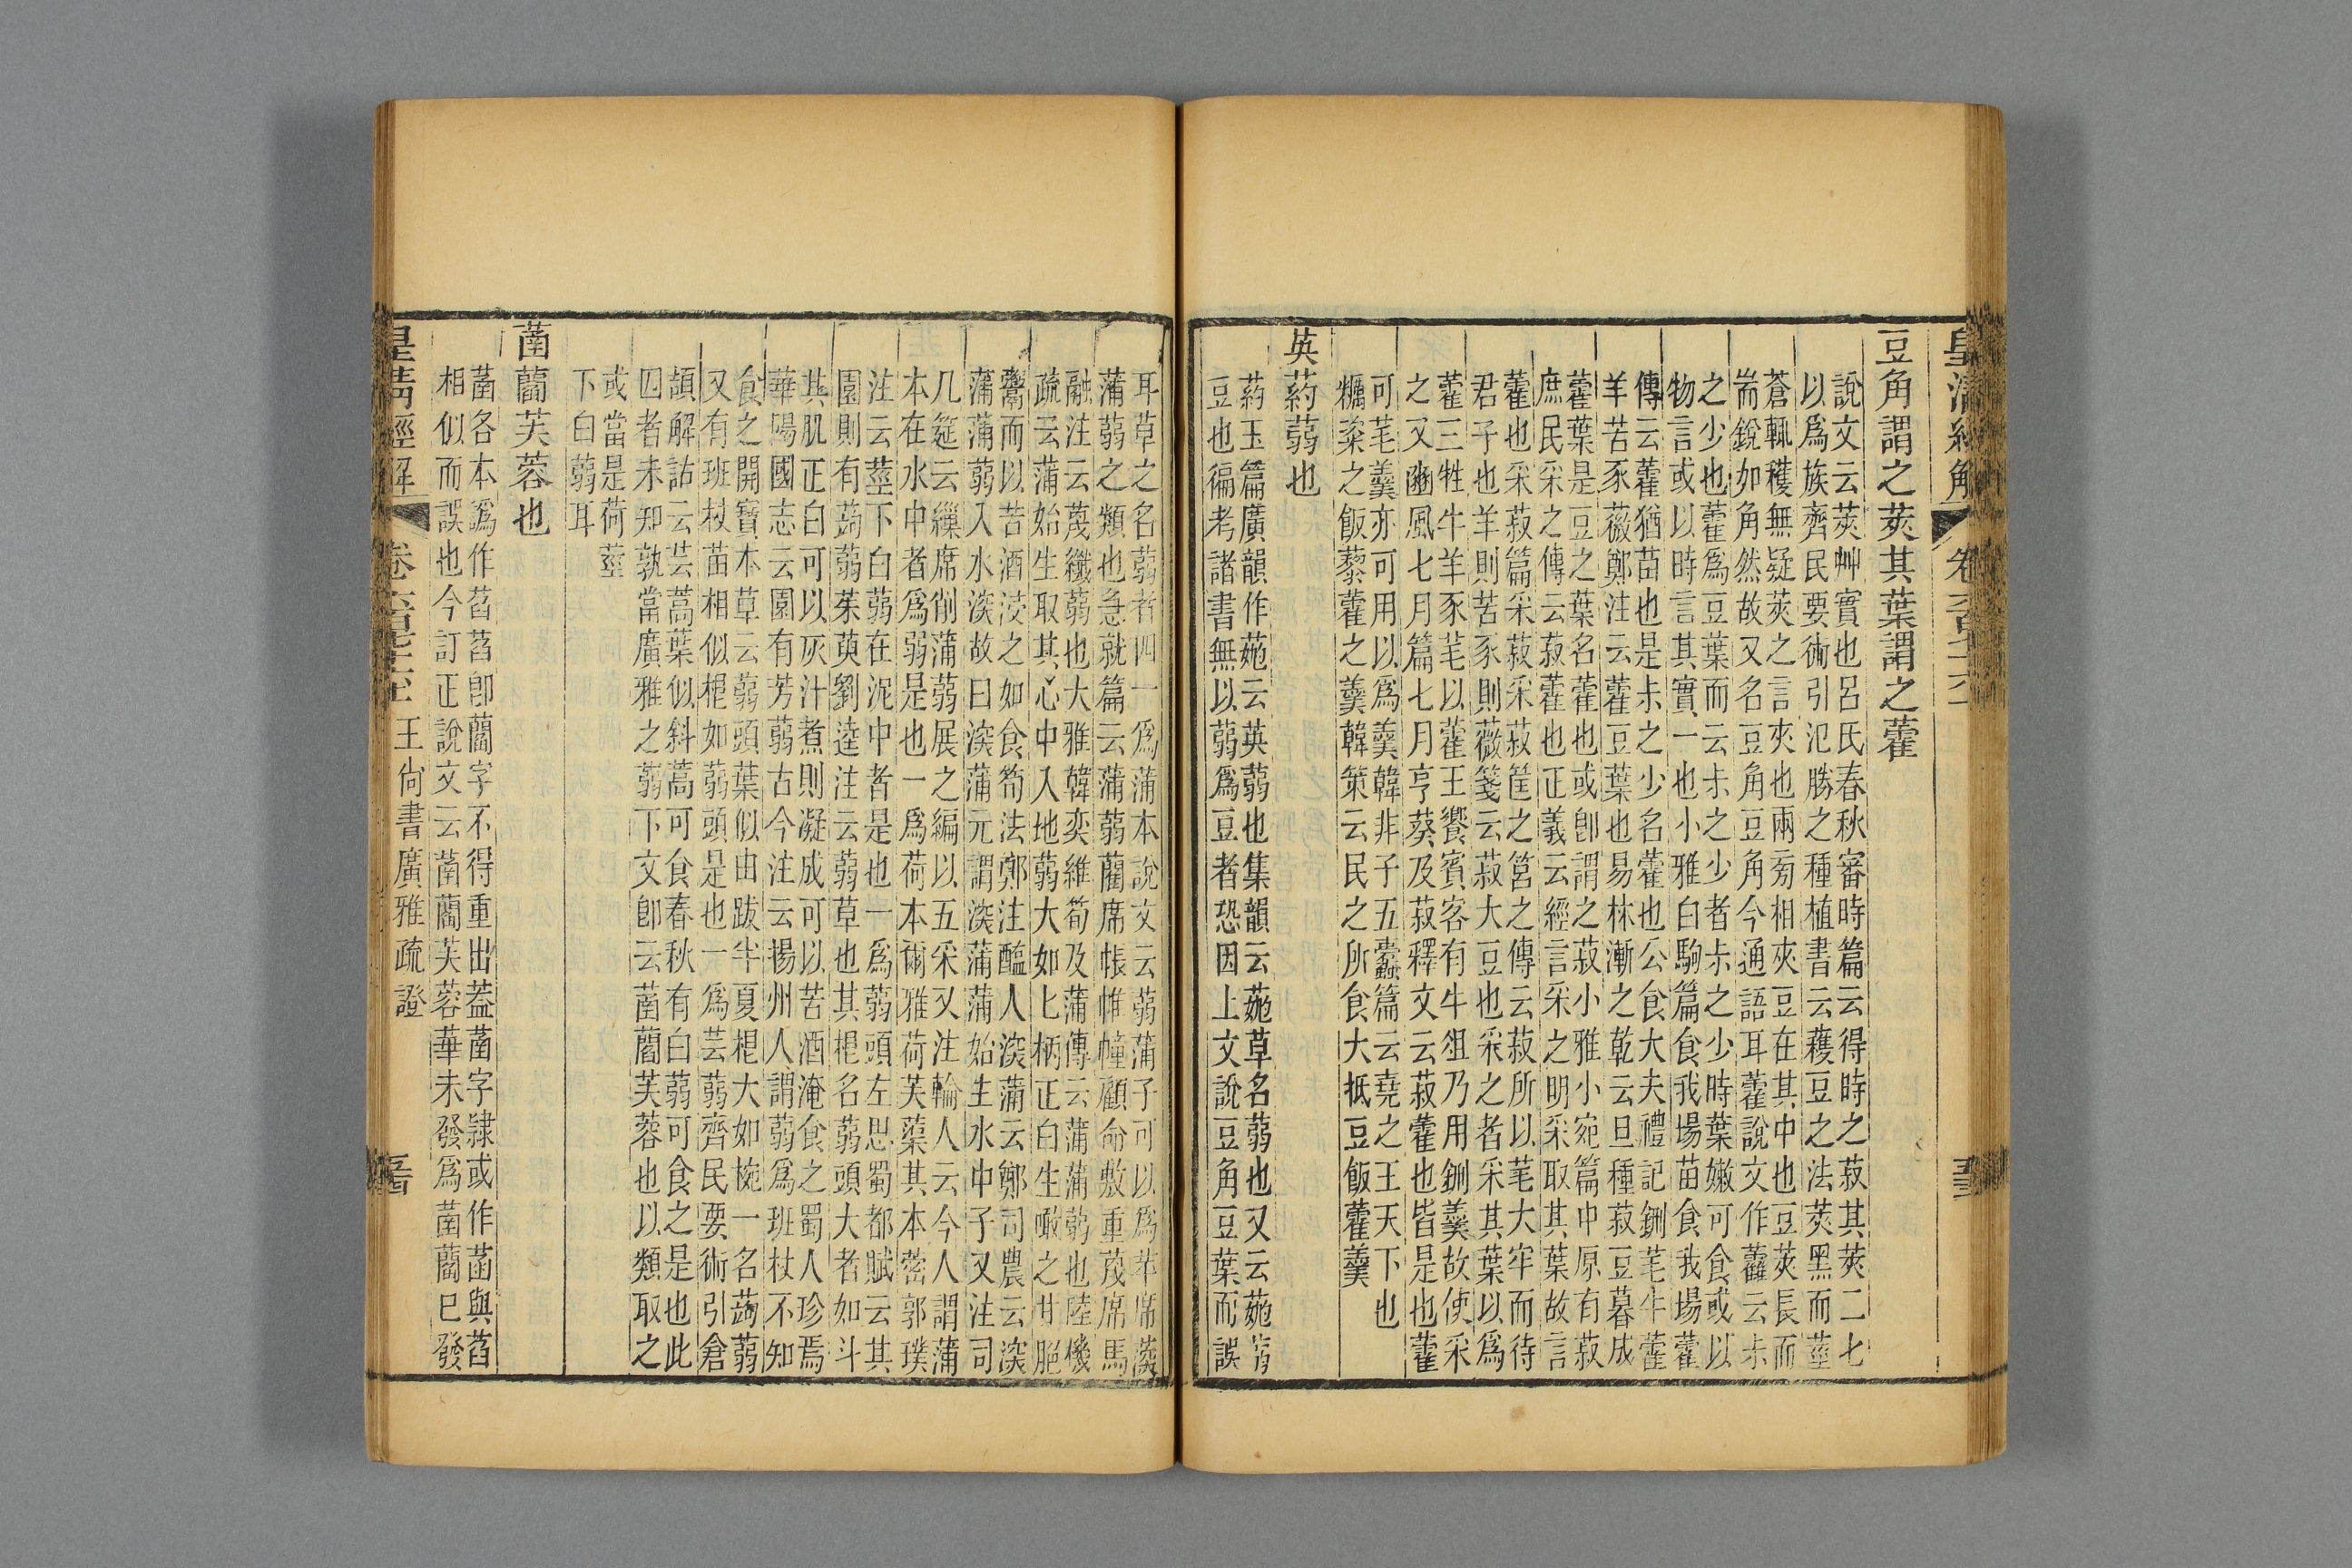 豆角謂之莢其葉謂之藿
說文云莢艸實也呂氏春秋審時篇云得時之菽其莢二七
以爲族齊民要術引氾勝之種植書云穫豆之法莢黑而莖
蒼輒穫無疑莢之言夾也兩旁相夾豆在其中也豆莢長而
耑銳如角然故又名豆角豆角今通語耳藿說文作䕡云尗
之少也藿爲豆葉而云尗之少者尗之少時葉嫩可食或以
物言或以時言其實一也小雅白駒篇食我場苗食我場藿
傳云藿猶苗也是尗之少名藿也公食大夫禮記鉶芼牛藿
羊苦豕薇鄭注云藿豆葉也易林漸之乾云旦種菽豆暮成
藿葉是豆之葉名藿也或卽謂之菽小雅小宛篇中原有菽
庶民采之傳云菽藿也正義云經言采之明采取其葉故言
藿也采菽篇采菽采菽筐之筥之傳云菽所以芼大牢而待
君子也羊則苦豕則薇箋云菽大豆也采之者采其葉以爲
藿三牲牛羊豕芼以藿王饗賓客有牛俎乃用鉶羹故使采
之又豳風七月篇七月亨葵及菽釋文云菽藿也皆是也藿
可芼羹亦可用以爲羹韓非子五蠹篇云堯之王天下也
糲粢之飯藜藿之羹韓策云民之所食大抵豆飯藿羹
英葯蒻也
葯玉篇廣韻作葹云英蒻也集韻云葹草名蒻也又云葹
豆也徧考諸書無以蒻爲豆者恐因上文說豆角豆葉而誤
耳草之名蒻者四一爲蒲本說文云蒻蒲子可以爲苹席
蒲蒻之類也急就篇云蒲蒻藺席帳帷幢顧命敷重蔑席馬
融注云蔑纖蒻也大雅韓奕維筍及蒲傳云蒲蒲蒻也陸機
疏云蒲始生取其心中入地蒻大如匕柄正白生噉之甘脆
鬻而以苦酒浸之如食筍法鄭注醢人深蒲云鄭司農云深
蒲蒲蒻入水深故曰深蒲元謂深蒲蒲始生水中子又注司
几筵云繅席削蒲蒻展之編以五采又注輪人云今人謂蒲
本在水中者爲弱是也一爲荷本爾雅荷芙蕖其本蔤郭璞
注云莖下白蒻在泥中者是也一爲蒻頭左思蜀都賦云其
園則有蒟蒻茱萸劉逵注云蒻草也其根名蒻頭大者如斗
其肌正白可以灰汁煮則凝成可以苦酒淹食之蜀人珍焉
華陽國志云園有芳蒻古今注云揚州人謂蒻爲班杖不知
食之開寶本草云蒻頭葉似由跋半夏根大如椀一名蒟蒻
又有班杖苗相似根如蒻頭是也一爲芸蒻齊民要術引倉
頡解詁云芸蒿葉似斜蒿可食春秋有白蒻可食之是也此
四者未知孰當廣雅之蒻下文卽云菡藺芙蓉也以類取之
或當是荷莖
下白蒻耳
菡藺芙蓉也
菡各本譌作萏萏卽藺字不得重出蓋菡字隸或作菡與萏
相似而誤也今訂正說文云菡藺芙蓉華未發爲菡藺已發
皇清經解
王尚書廣雅疏證